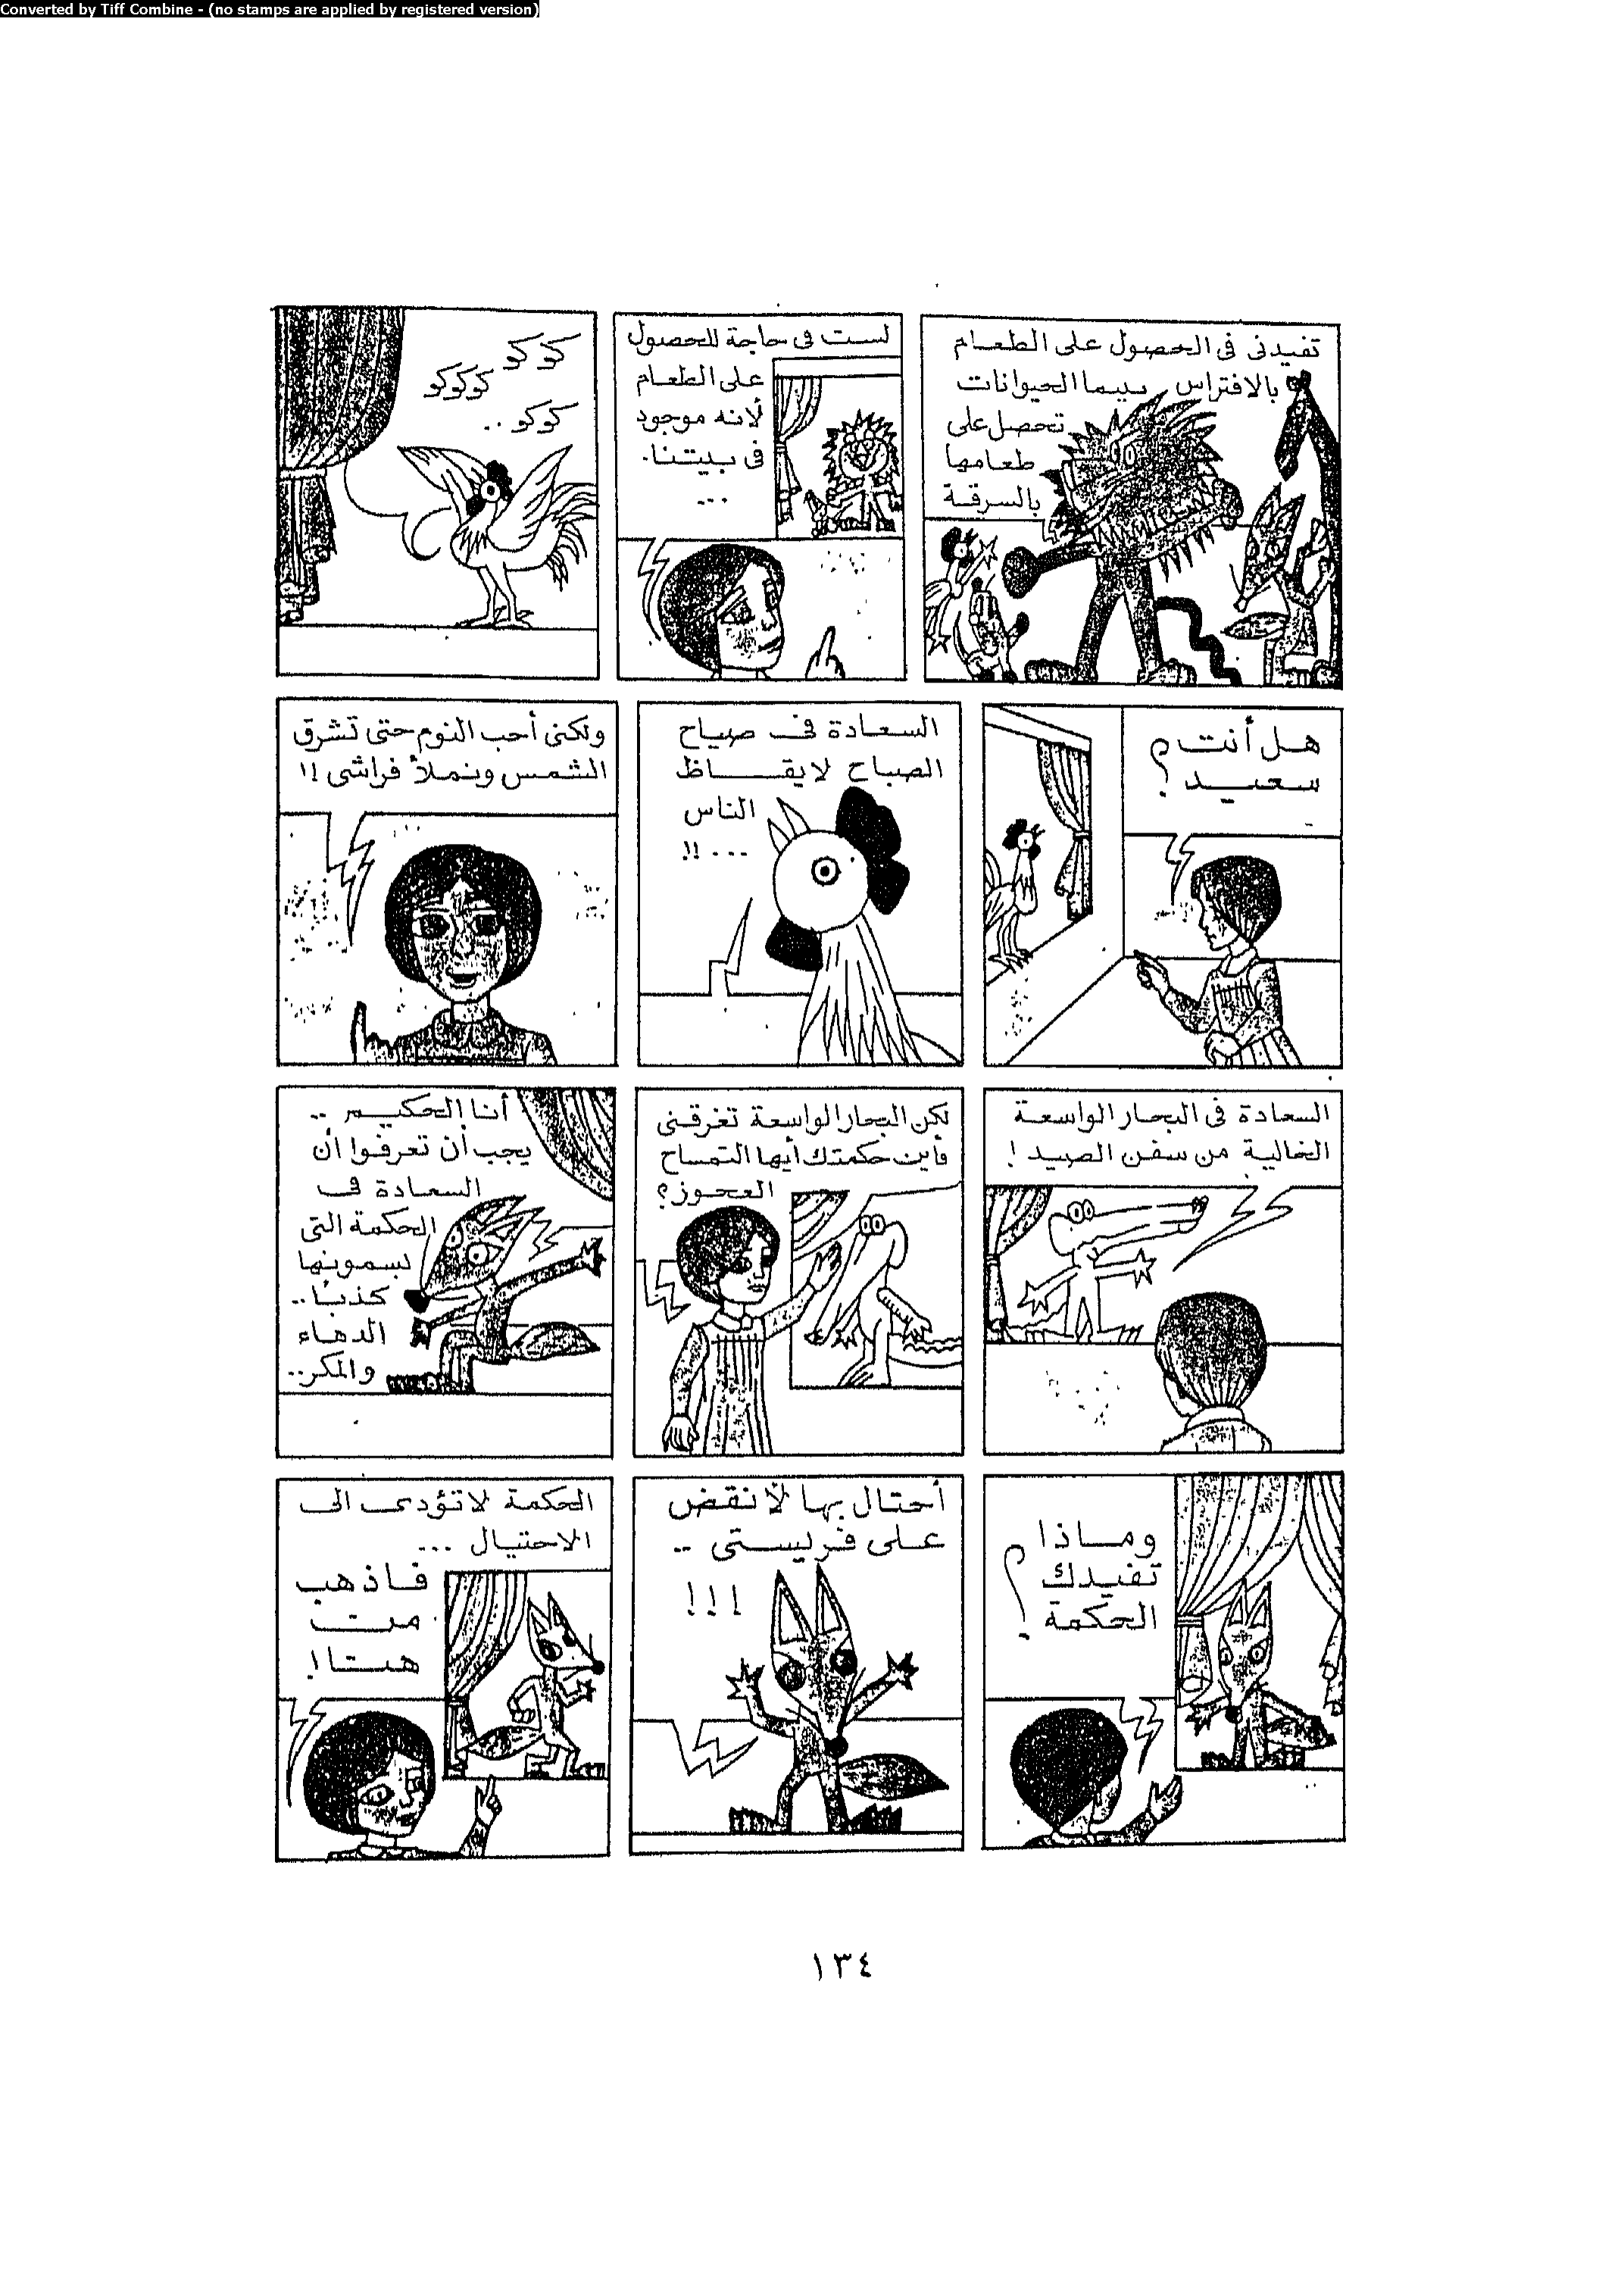 Converted by Tiff Combine - (no stamps are applied by registered version)
تفيدنى فى الحصول على الطعام
بالافتراس بينما الحيوانات
تحصل على
طعامها
بالسرقة
لست فى حاجة للحصول
على الطعام
لأنه موجود
فى بيتنا.
...
كوكو
كوكوكو
كوكو..
هل أنت
سعيد؟
السعادة فى صياح
الصباح لايقاظ
الناس
...!!
ولكنى أحب النوم حتى تشرق
الشمس وتملأ فراشى !!
السعادة فى البحار الواسعة
الخالية من سفن الصيد !
لكن البحار الواسعة تغرقنى
فأين حكمتك أيها التمساح
العجوز؟
أنا الحكيم ..
يجب أن تعرفوا أن
السعادة فى
الحكمة التى
يسمونها
كذبا..
الدهاء
والمكر..
وماذا
تفيدك
الحكمة؟
أحتال بها لأنقض
على فريستى ..
!!!
الحكمة لا تؤدى الى
الاحتيال ...
فاذهب
من
هنا!
١٣٤